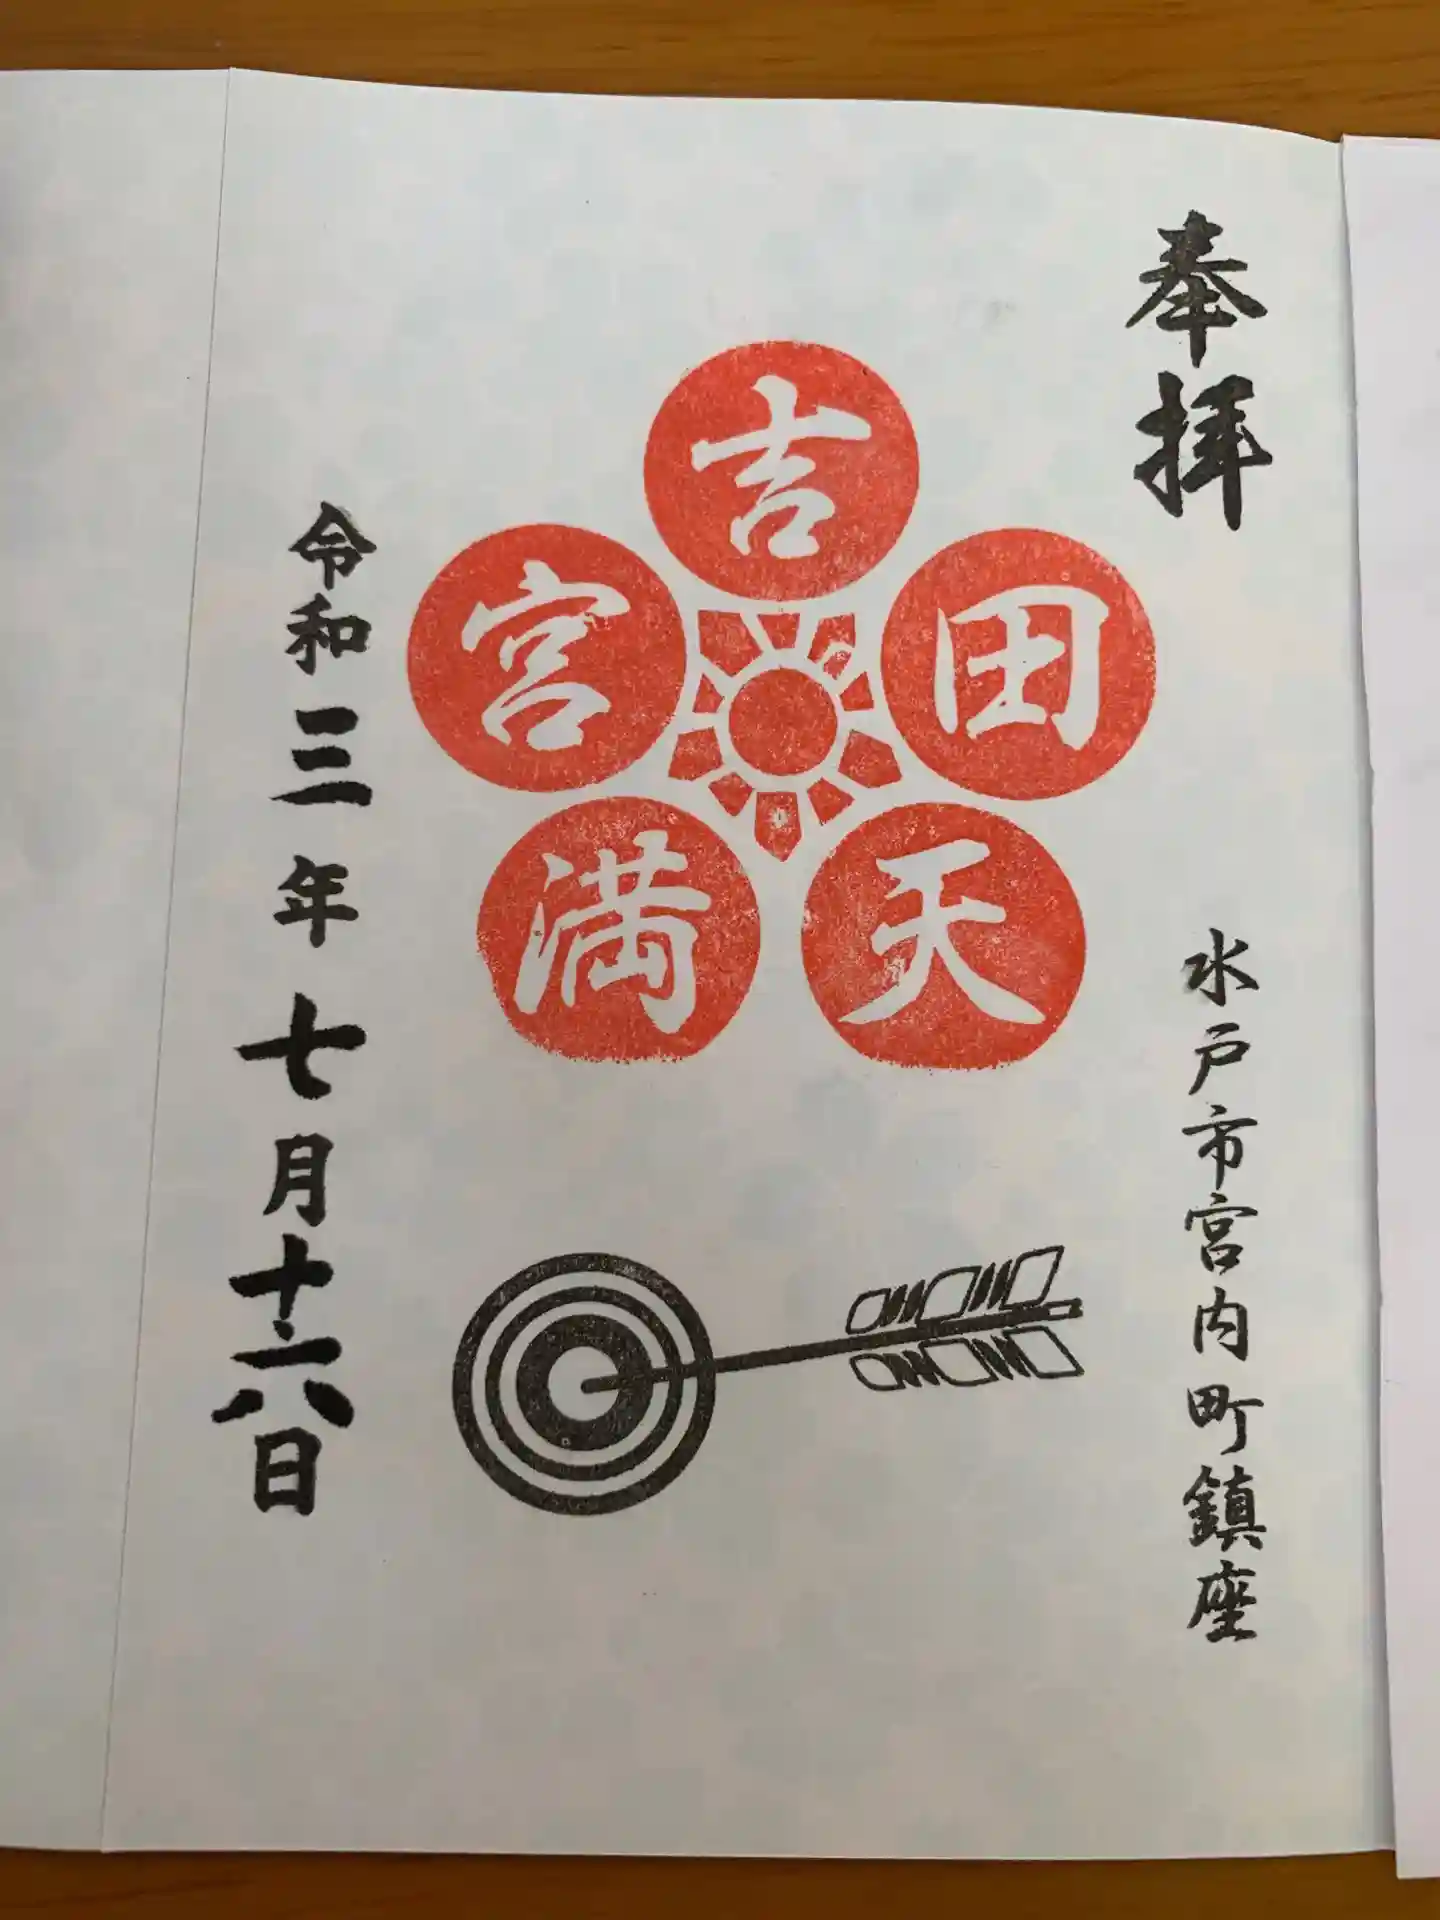 奉拝
水戸市宮内町鎮座
吉田天満宮
令和三年七月十六日